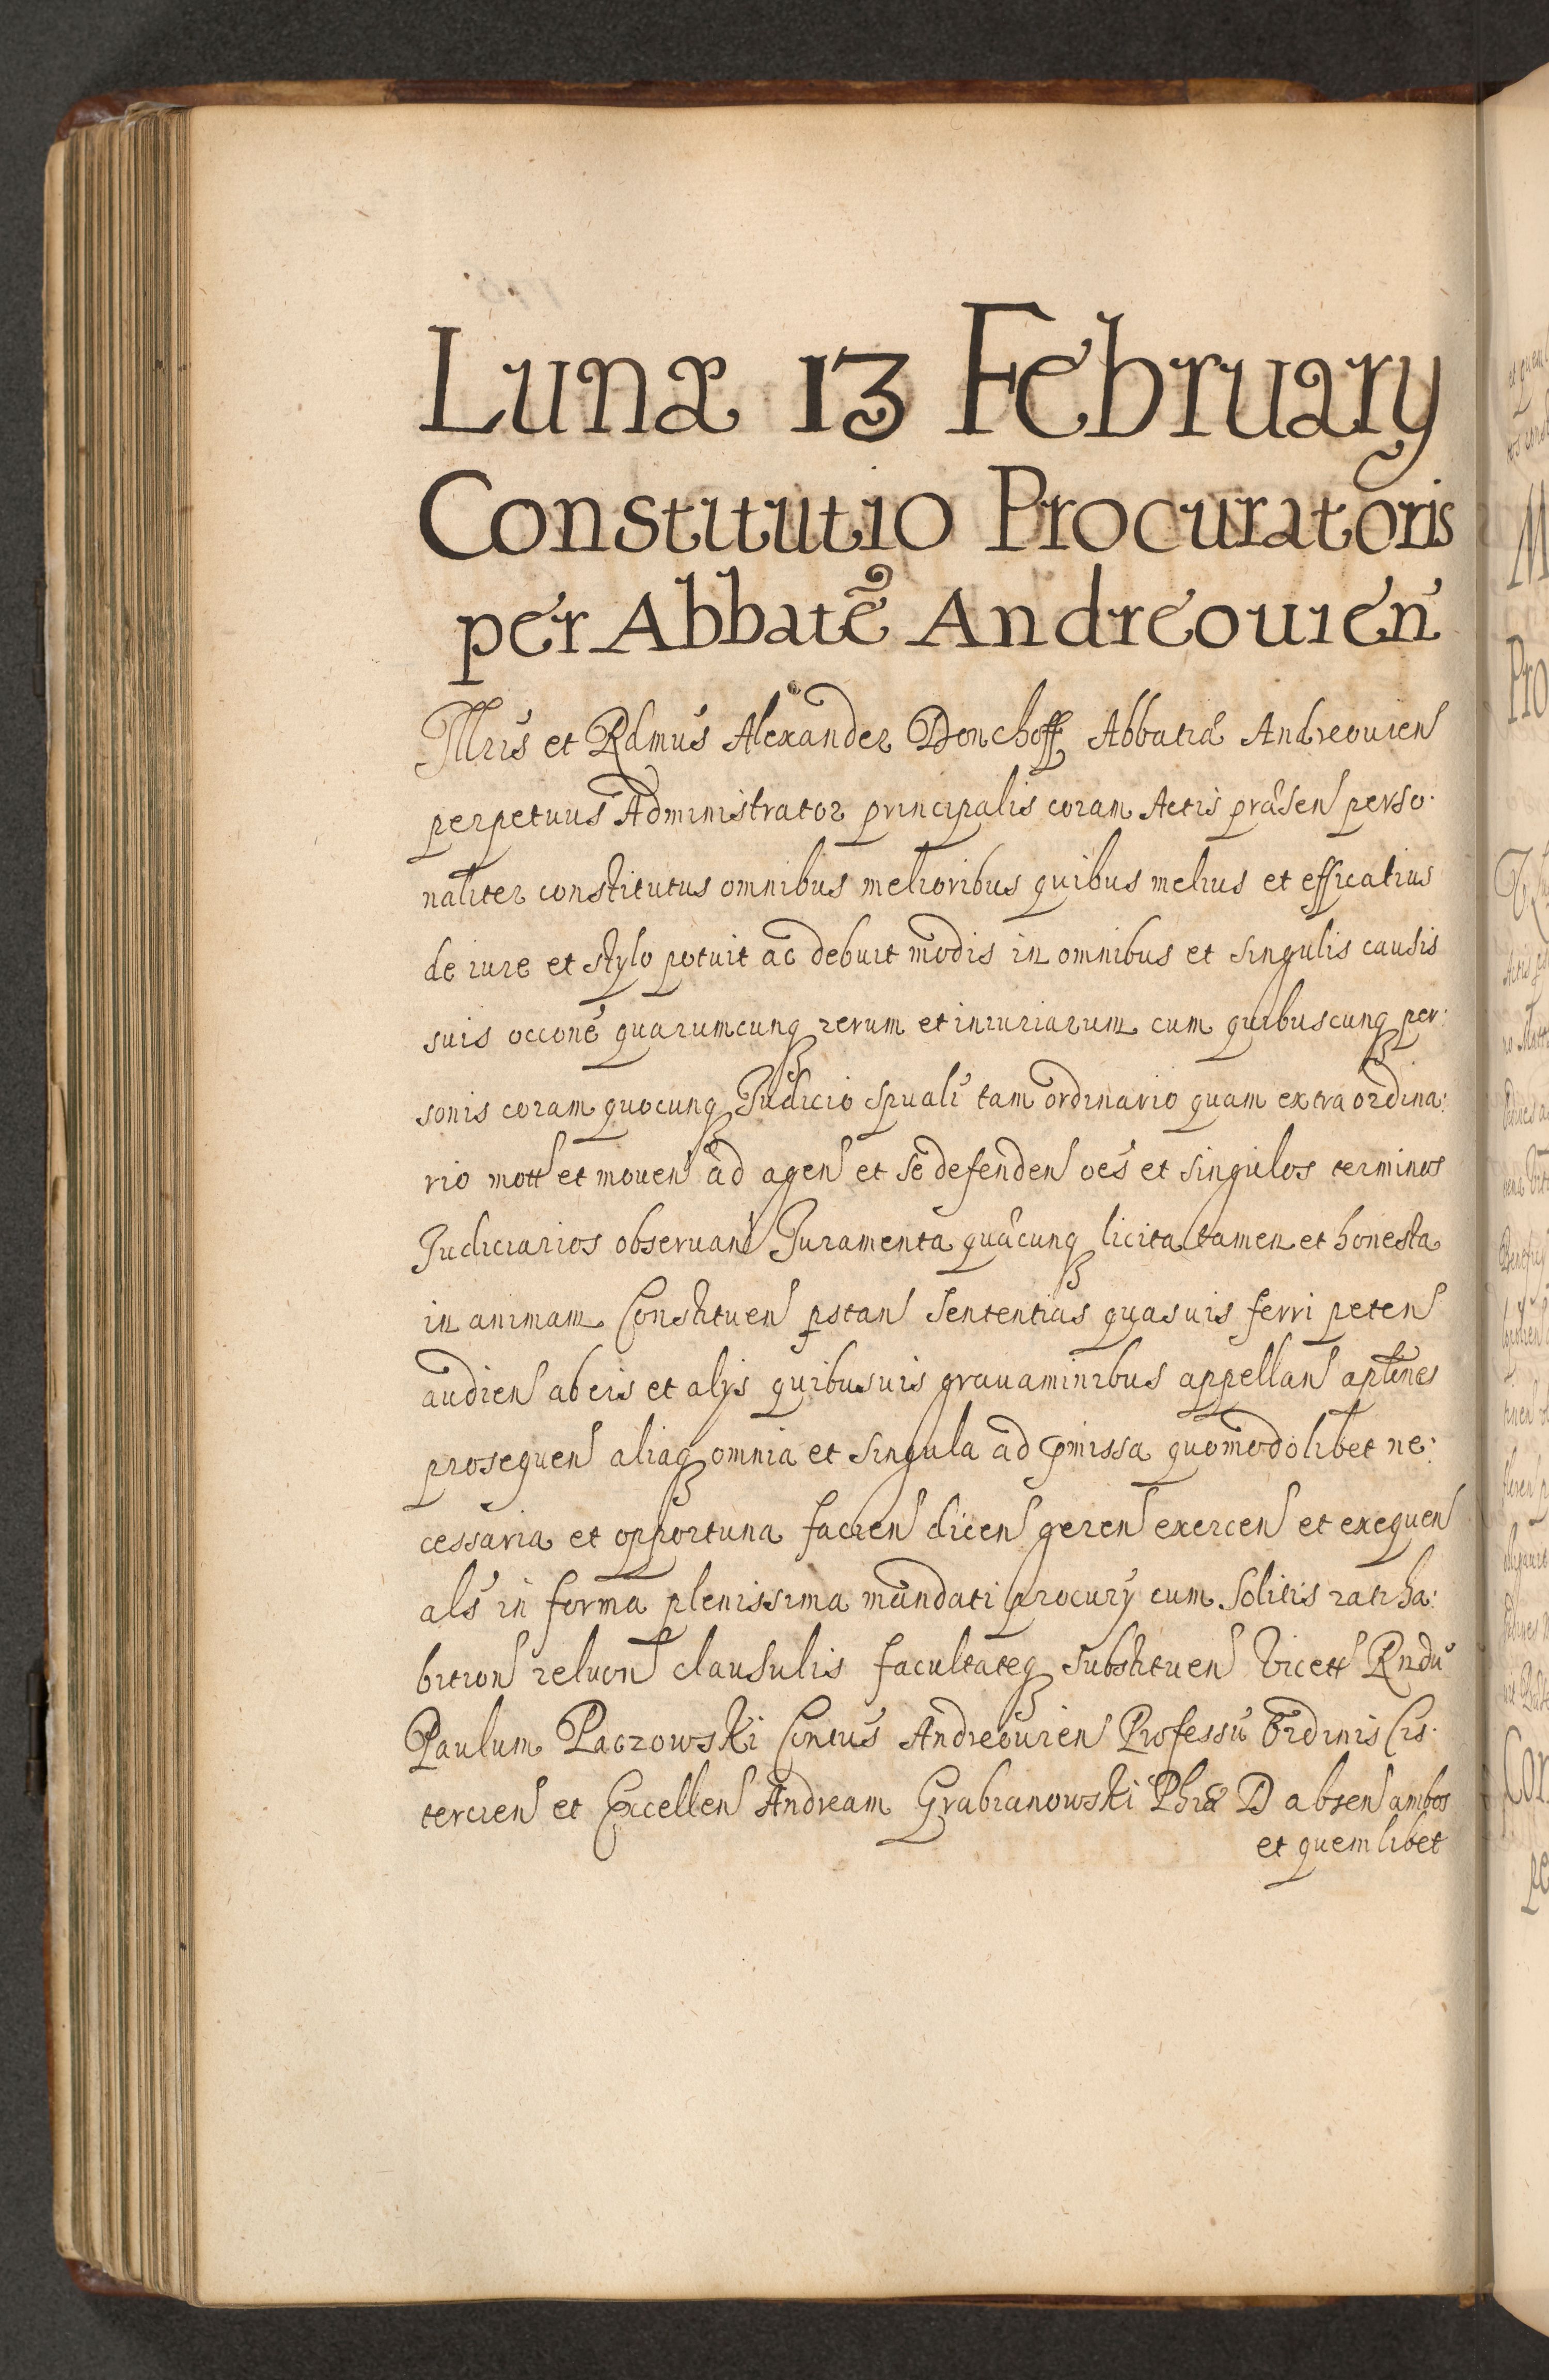 Lunæ 13 February
Constitutio Procuratoris
per Abbatē Andreouien
Illris et Rdmus Alexander Denchoff Abbatiæ Andreouien
perpetuus Administrator principalis coram Actis præsen perso
naliter constitutus omnibus melioribus quibus melius et efficatius
de iure et stylo potuit ac debuit modis in omnibus et singulis causis
suis occone quarumcunq rerum et iniuriarum cum quibuscunq per:
sonis coram quocunq Judicio spuali tam ordinario quam extraordina:
rio mott et mouen ad agen et se defenden oes et singulos terminos
Judiciarios obseruan Juramenta quæcunq licita tamen et honesta
in animam Constituen pstan Sententias quasuis ferri peten
audien ab eis et alijs quibusuis grauaminibus appellan aptines
prosequen aliaq omnia et singula ad pmissa quomodolibet ne:
cessaria et opportuna facien dicen geren exercen et exequen
als in forma plenissima mandati procurij cum solitis ratiha:
bition reluon clausulis facultateq substituen vicett Rndu
Paulum Paczowski Contus Andreouien Professu Ordinis Cis
tercien et Excellen Andream Grabianowski Phiæ D absen ambos
et quemlibet